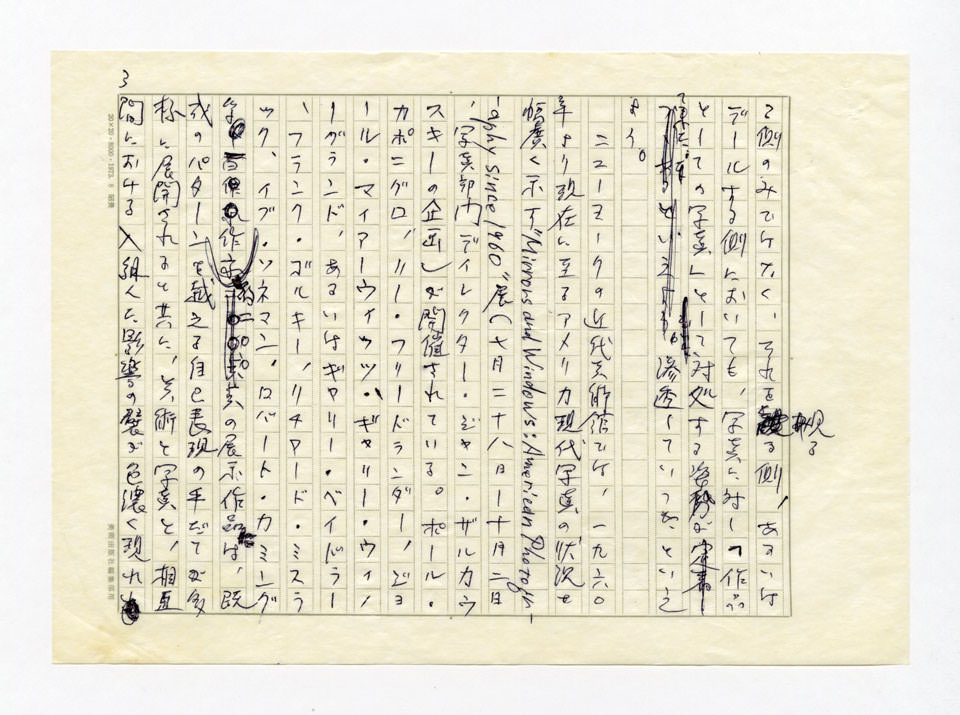 3
る側のみでけなく、それを観る側、あるいは
デールする側においても、写真に対して作品
としての写真として対処する姿勢が
浸透していったといえ
よう。
ニューヨークの近代美術館では、一九六〇
年より現在に至るアメリカ現代写真の状況を
幅広く示す"Mirrors and Windows: American Photogr-
aphy since 1960"展(七月二十八日ー十月二日
、写真部門ディレクター・ジャン・ザルカウ
スキーの企画)が開催されている。ポール・
カポニグロ、リー・フリードランダー、ジョ
ール・マイアーウィッツ・ギャリー・ウィノ
ーグランド、あるいはギャリー・ベイドラー
、フランク・ゴルキー、リチャード・ミスラ
ック、イブ・ソネマン、ロバート・カミング
等 作家 の展示作品は、既
成のパターンを越える自己表現の手だてが多
様に展開されると共に、美術と写真と、相互
間における入組んだ影響の襞が色濃く現れ
20×20・8000・1973.8
美術出版社編集部用